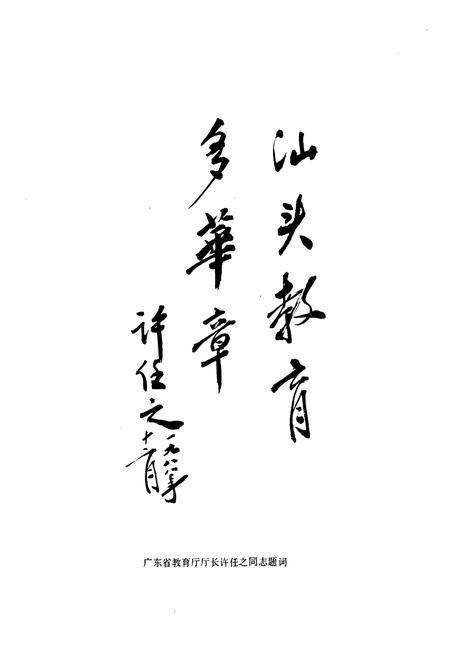 汕头教育
多華章
许任之
一九八八年
十二月
广东省教育厅厅长许任之同志题词